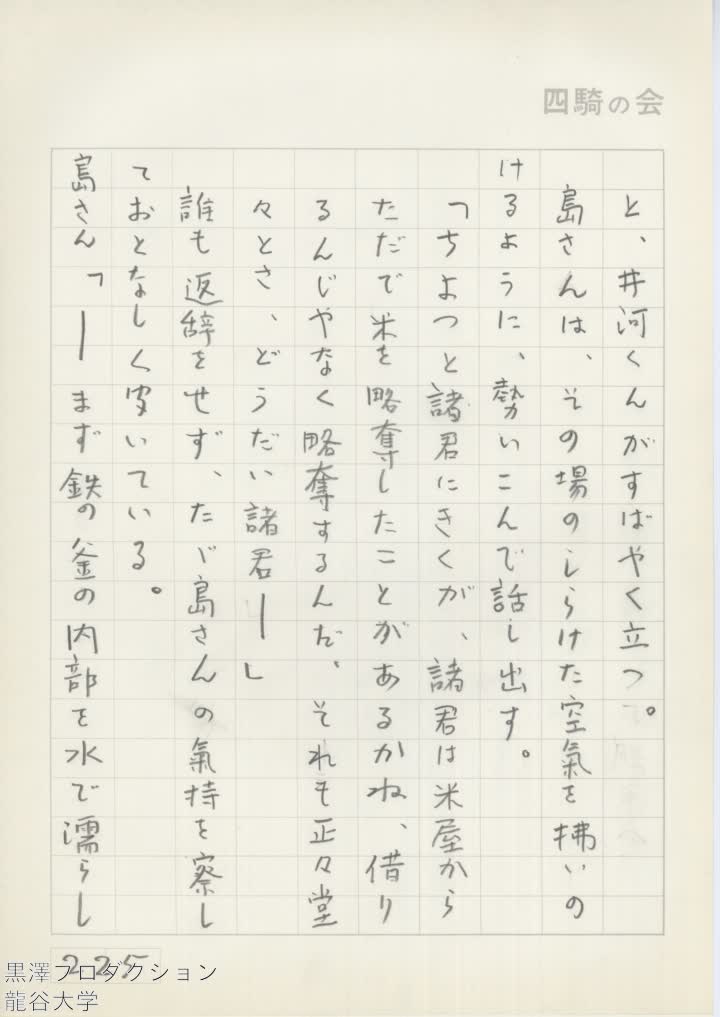 四騎の会
と、井河くんがすばやく立つ。
島さんは、その場のしらけた空氣を拂いの
けるように、勢いこんで話し出す。
「ちよつと諸君にきくが、諸君は米屋から
ただで米を略奪したことがあるかね、借り
るんじやなく略奪するんだ、それも正々堂
々とさ、どうだい諸君―」
誰も返辞をせず、たゞ島さんの氣持を察し
ておとなしく皮いている。
島さん「―まず鉄の釜の内部を水で濡らし
225
黒澤プロダクション
龍谷大学